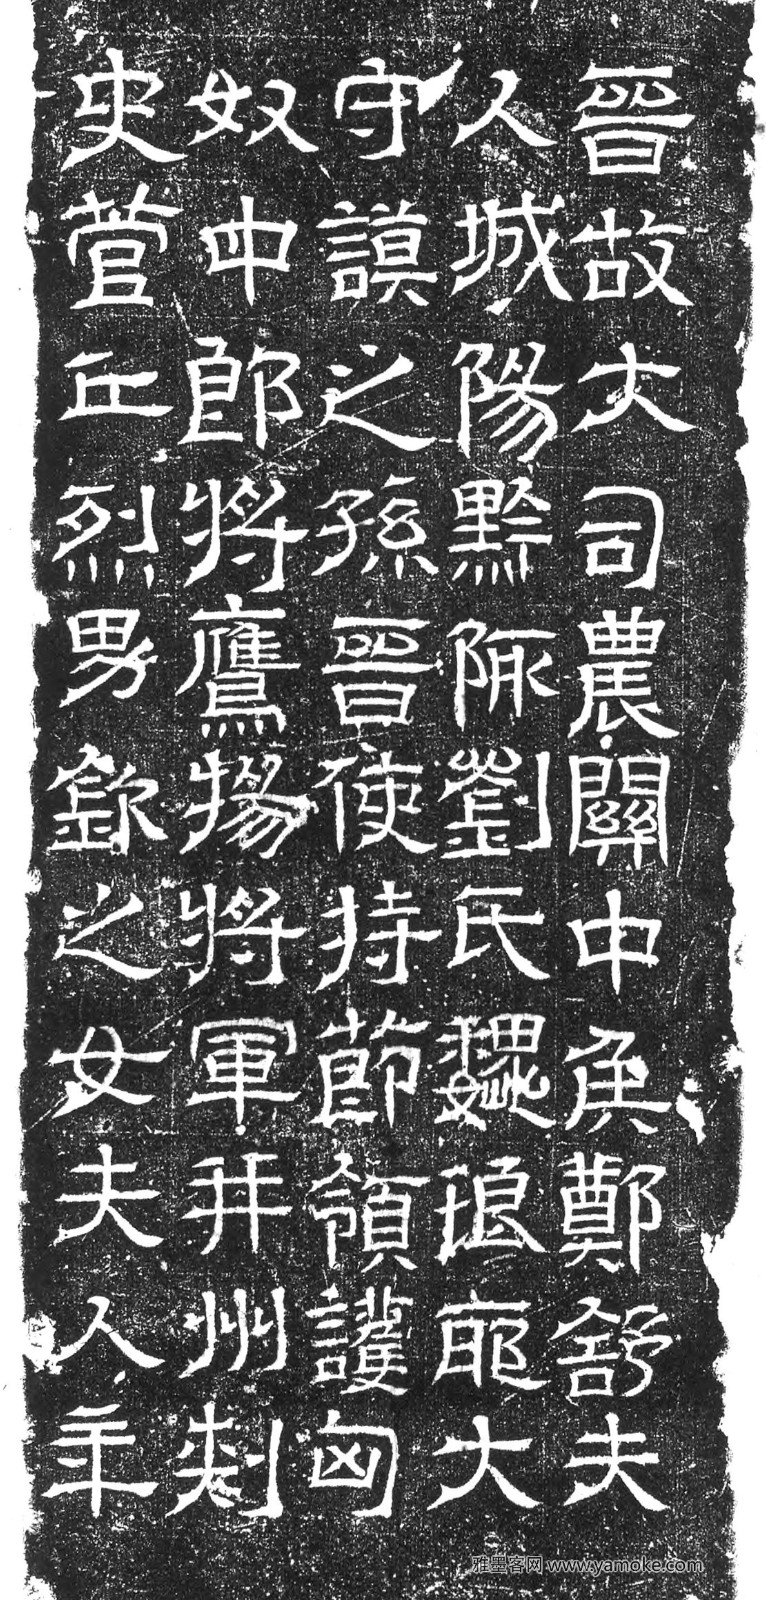 晉故大司農關中侯鄭舒夫
人城陽黔陬劉氏魏琅耶大
守謨之孫晉使持節領護匈
奴中郎將鷹揚將軍并州刾
史菅丘烈男欽之女夫人年
雅墨客网 www.yamoke.com